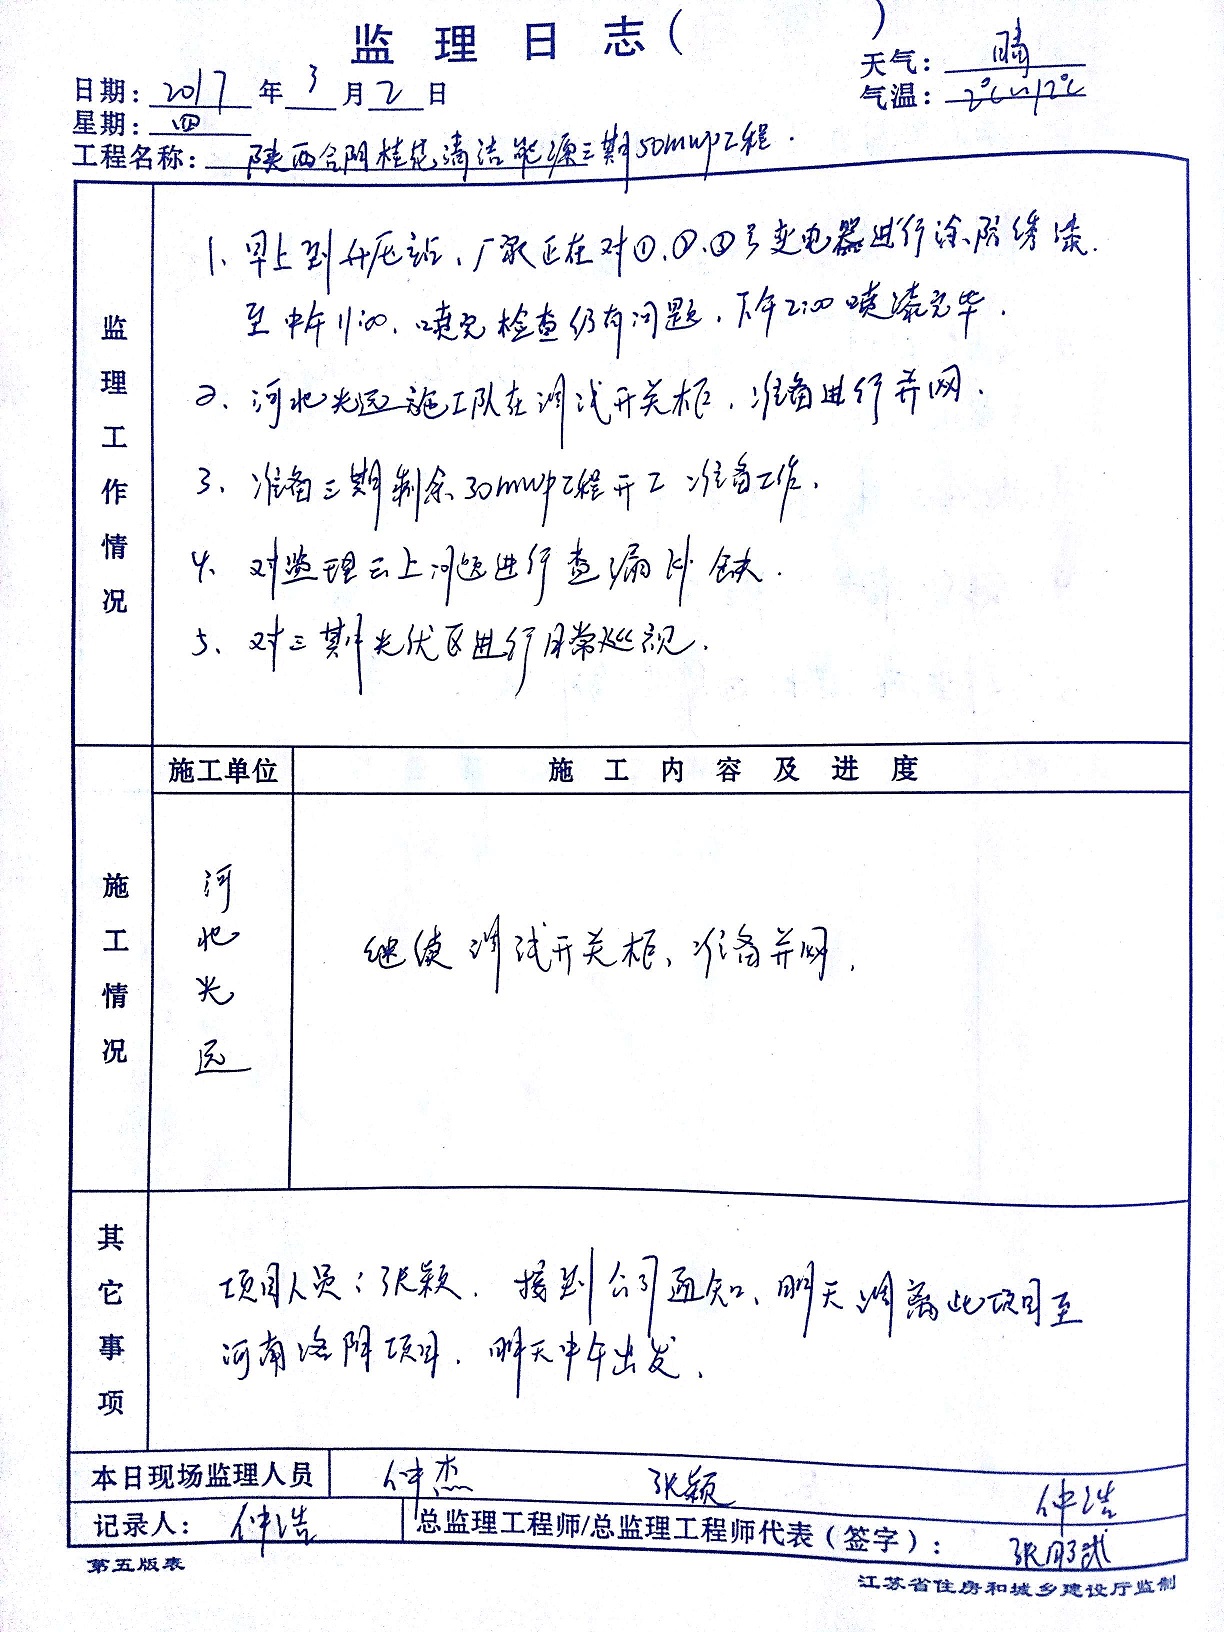 监理日志( )
日期: 2017 年 3 月 2 日
天气: 晴
星期: 四
气温: 2℃~12℃
工程名称: 陕西合阴桂花清洁能源三期50mwp工程.
监理工作情况
1、早上到升压站、厂家正在对①、②、③号变电器进行涂防锈漆.
至中午11:00、喷完检查仍有问题、下午2:00喷漆完毕.
2、河北光远施工队在调试开关柜、准备进行并网.
3、准备三期剩余30mwp工程开工准备工作.
4、对监理云上问题进行查漏补缺.
5、对三期光伏区进行日常巡视.
施工单位 施工内容及进度
施工情况
河北光远
继续调试开关柜、准备并网.
其它事项
项目人员:张颖. 接到公司通知、明天调离此项目至
河南洛阴项目. 明天中午出发.
本日现场监理人员 仲杰 张颖 仲浩
记录人: 仲浩 总监理工程师/总监理工程师代表(签字):
第五版表
江苏省住房和城乡建设厅监制